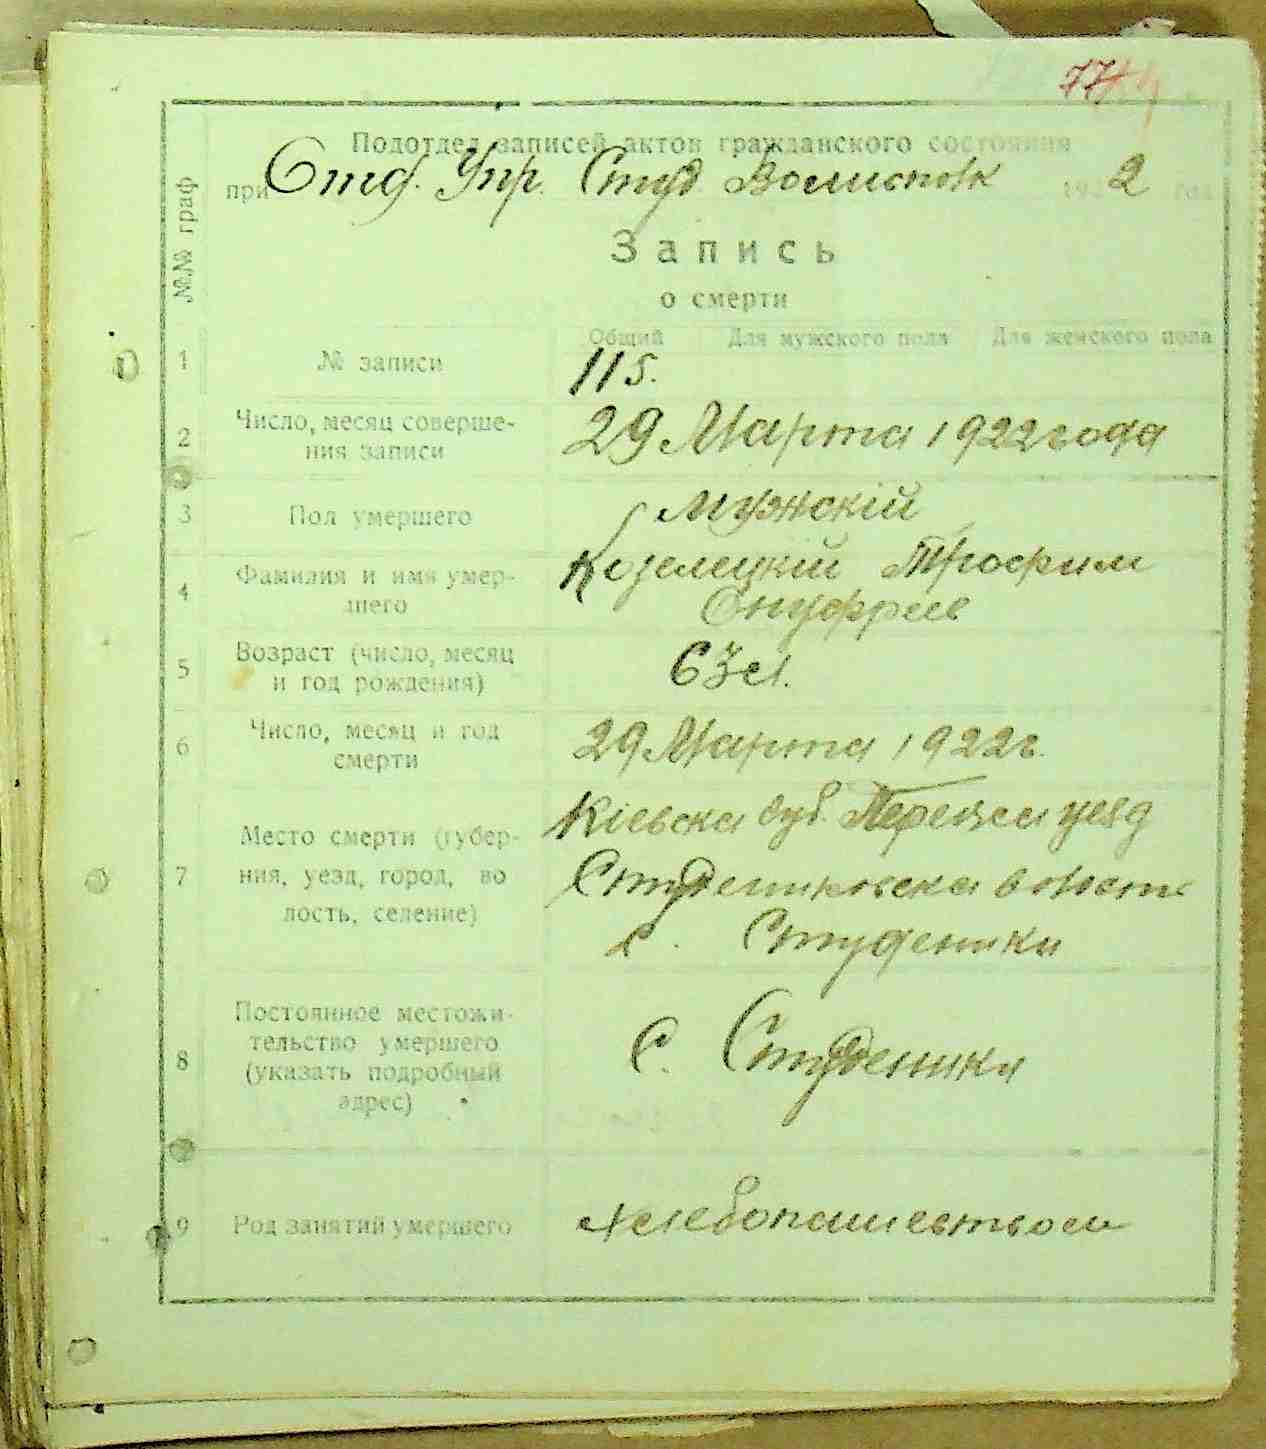 77
Подотдел записей актов гражданского состояния
при Отд. Упр. Студ 1922 год
№№ граф
Запись
о смерти
Общий Для мужского пола Для женского пола
1 № записи 115.
2 Число, месяц соверше-
ния записи 29 Марта 1922 года
3 Пол умершего Мужскій
4 Фамилия и имя умер-
шего Козелецкій Трофим
Онуфриев
5 Возраст (число, месяц
и год рождения) 63 л.
6 Число, месяц и год
смерти 29 Марта 1922 г.
7 Место смерти (губер-
ния, уезд, город, во
лость, селение) Кіевска губ. уезд
Студениковска волость
с. Студеники
8 Постоянное местожи-
тельство умершего
(указать подробный
адрес) С. Студеники
9 Род занятий умершего хлебопашевством